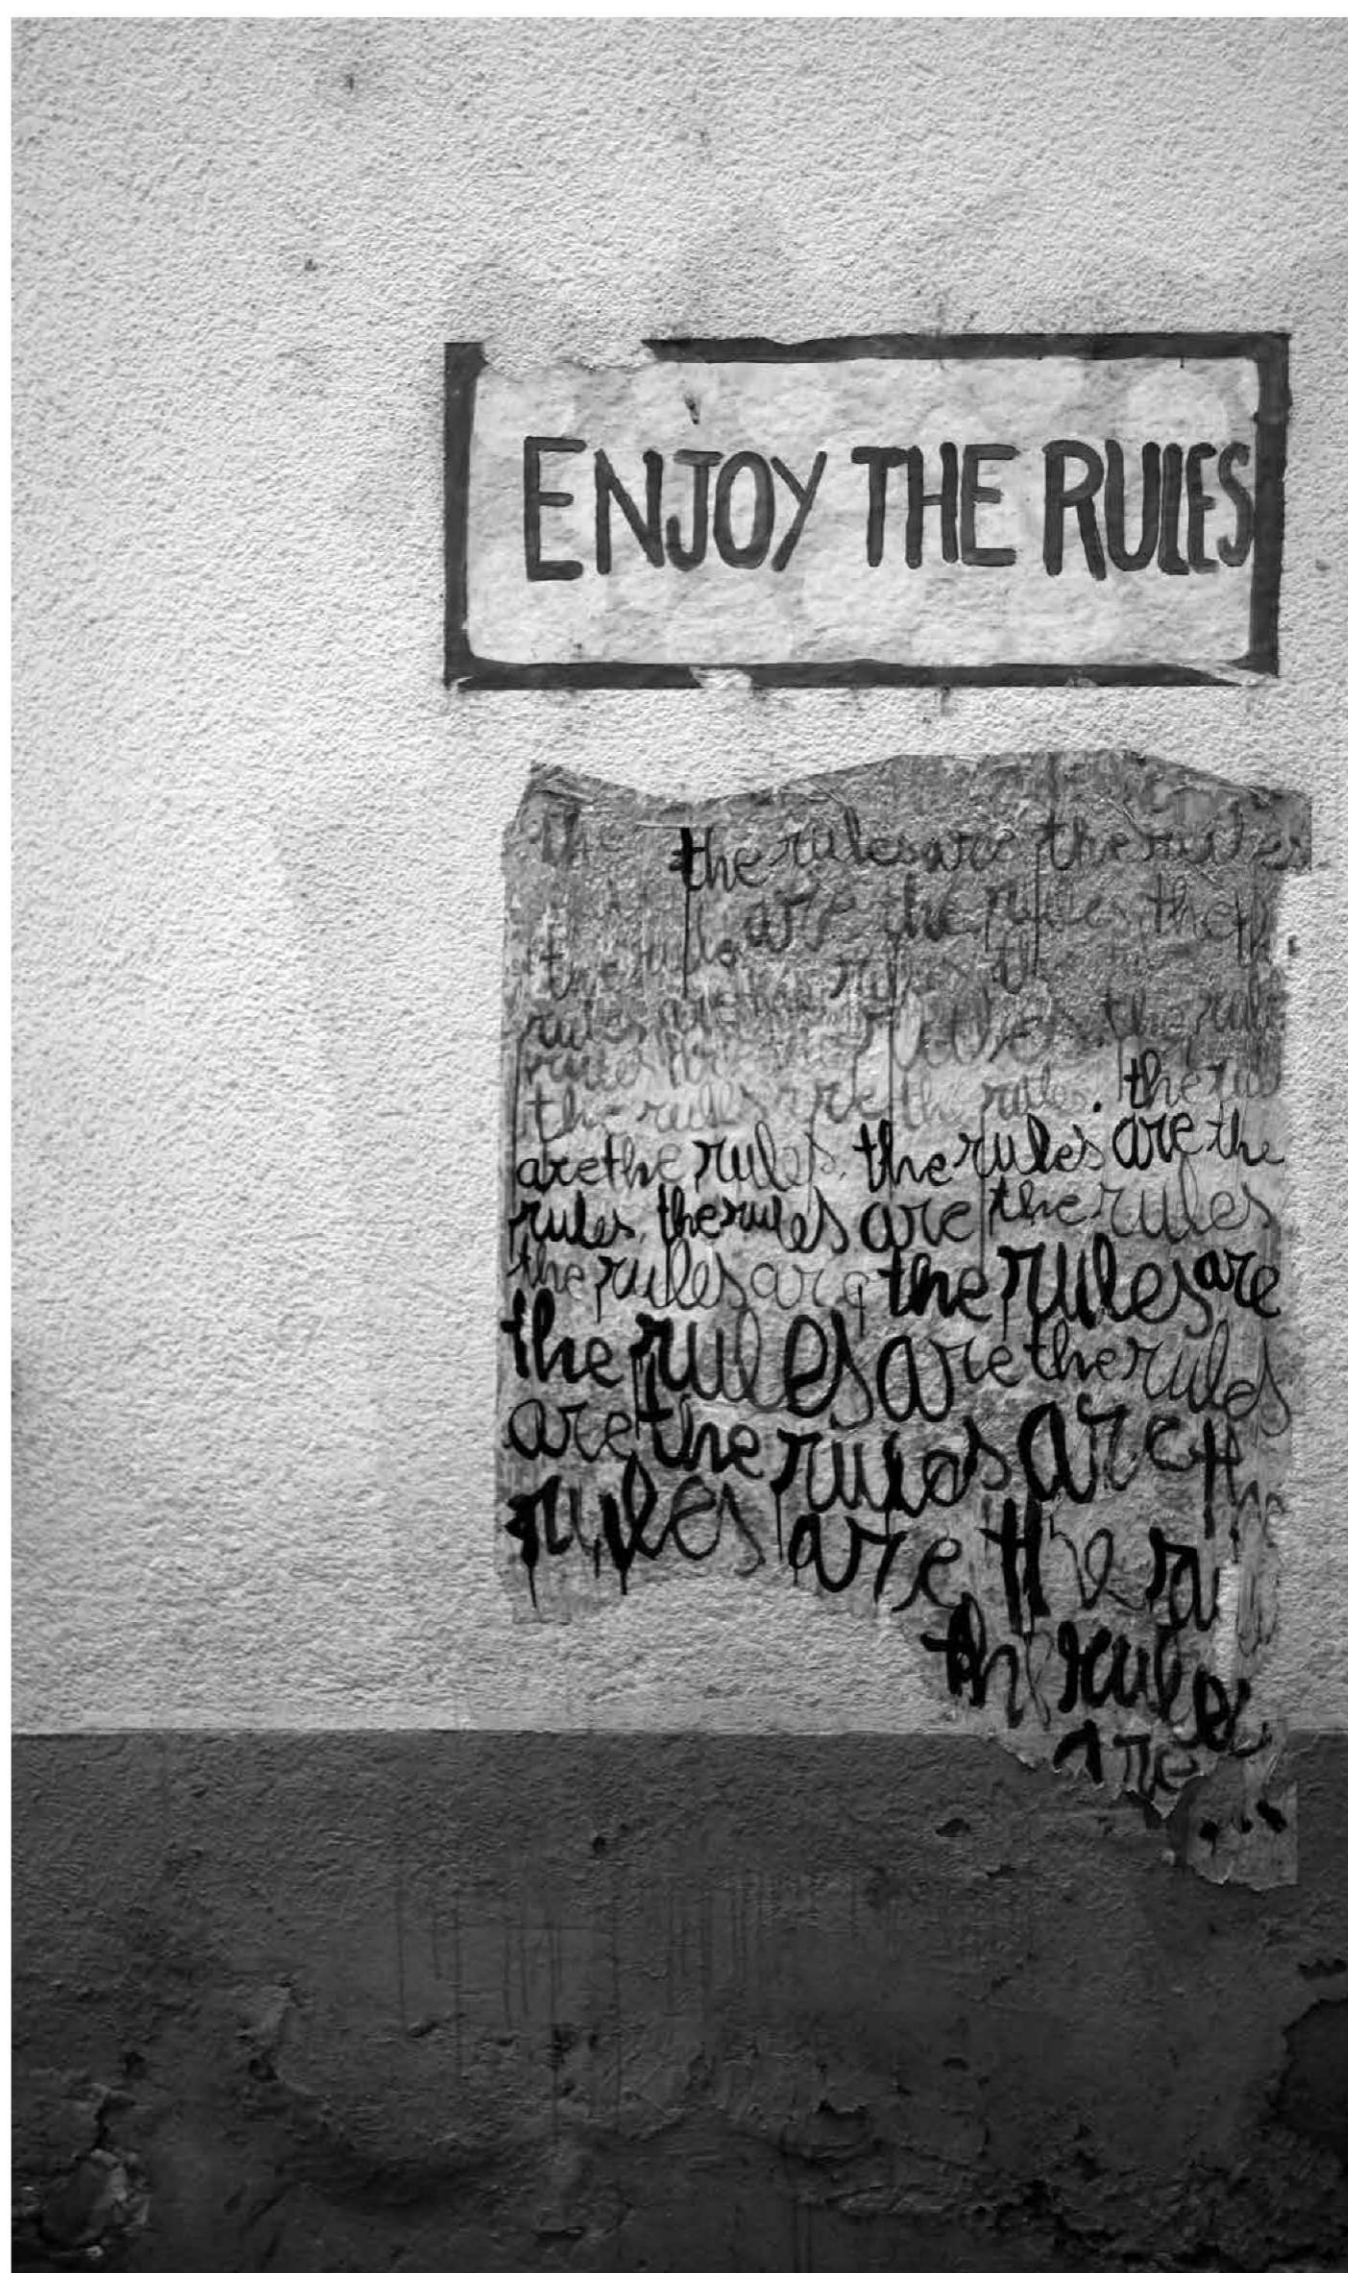 ENJOY THE RULES
the rules are the rules
are the rules the
the rules
rules the rules
the rules are the rules. the rules
are the rules. the rules are the
rules. the rules are the rules
the rules are the rules are
the rules are the rules
are the rules are the
rules are the ru
the rules
are
...